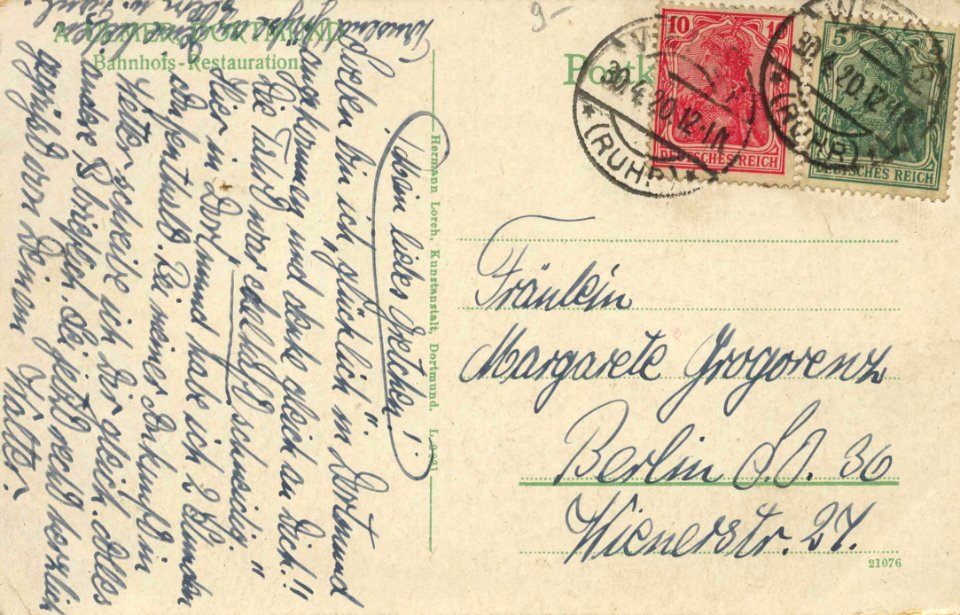 9-
A. DEMER, DORTMUND
Bahnhofs-Restauration.
Postk
WETTER
30.4.20.12-1N
(RUHR)
10
DEUTSCHES REICH
WETTER
30.4.20.12-1N
(RUHR)
5
DEUTSCHES REICH
Mein liebes Gretchen!
Soeben bin ich "glücklich" in Dortmund
angekommen und denke gleich an Dich!!
Die Fahrt war ekelhaft schmeissig."
Hier in Dortmund habe ich 2 Stunden
Aufenthalt. Bei meiner Ankunft in
Wetter schreibe ich Dir gleich. Alles
andere brieflich. Sei jetzt recht herzlich
gegrüßt von Deinem
Walter.
Tausend
Hermann Lorch, Kunstanstalt, Dortmund.
Fräulein
Margarete Grogorenz
Berlin S.O. 36
Wienerstr. 27.
21076